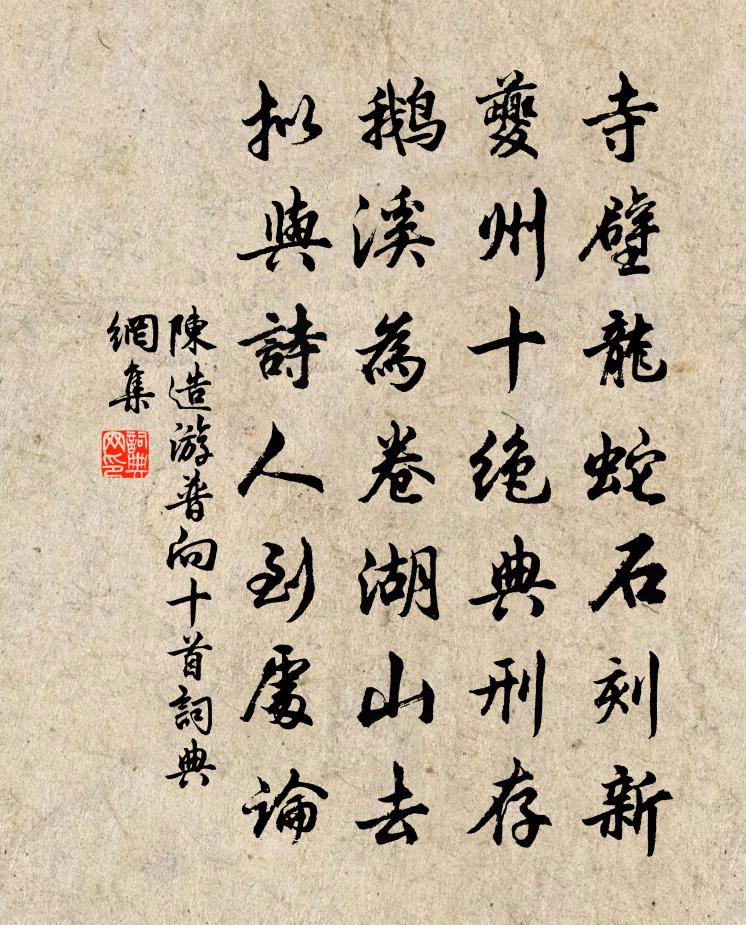 寺壁龍蛇石刻新
夔州十絶典刑存
鵝溪為卷湖山去
拟與詩人到處論
陳造游普向十首詞典
網集
詞典
网印